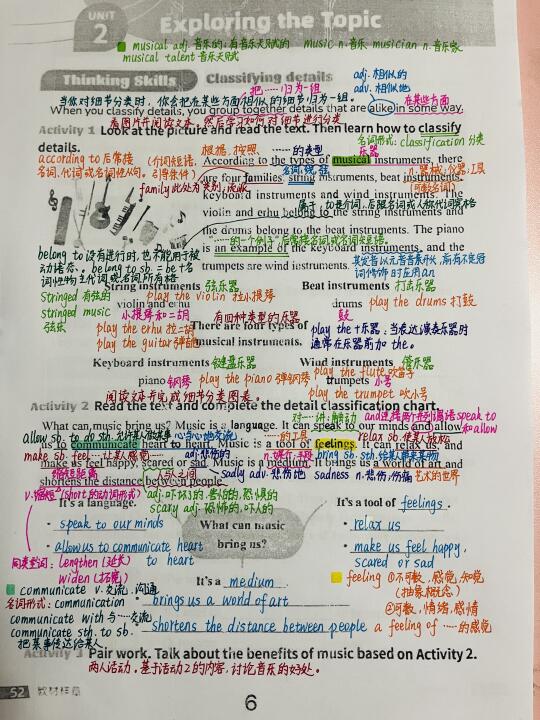 UNIT 2
Exploring the Topic
musical adj. 音乐的；有音乐天赋的 music n. 音乐 musician n. 音乐家
musical talent 音乐天赋
Thinking Skills Classifying details
把……归为一组
adj. 相似的
adv. 相似地
当你对细节分类时，你会把在某些方面相似的细节归为一组。
在某些方面
When you classify details, you group together details that are alike in some way.
看图片并阅读课文，然后学习如何对细节进行分类
Activity 1 Look at the picture and read the text. Then learn how to classify
details.
名词形式: classification 分类
根据，按照 ……的类型 乐器
according to 后常接
名词、代词或名词性从句。
According to the types of musical instruments, there
名词：线，弦
n. 器械；仪器；工具
(可数名词)
are four families: string instruments, beat instruments,
family 此处为类别，
keyboard instruments and wind instruments. The
属于
violin and erhu belong to the string instruments and
the drums belong to the beat instruments. The piano
……的一个例子 后常接名词或名词短语。
belong to 没有进行时，也不能用于被
动语态。
is an example of the keyboard instruments, and the
trumpets are wind instruments.
String instruments 弦乐器
Beat instruments 打击乐器
stringed 有弦的
play the violin 拉小提琴
violin and erhu
drums play the drums 打鼓
stringed music
弦乐
小提琴和二胡
有四种类型的乐器
鼓
play the erhu 拉二胡
There are four types of
play the + 乐器：当表达演奏乐器时
play the guitar 弹吉他
musical instruments.
通常在乐器前加 the。
Keyboard instruments 键盘乐器
Wind instruments 管乐器
play the flute 吹笛子
piano 钢琴 play the piano 弹钢琴
trumpets 小号
play the trumpet 吹小号
阅读文章并完成细节分类图表。
Activity 2 Read the text and complete the detail classification chart.
What can music bring us? Music is a language. It can speak to our minds and allow
allow sb. to do sth. 允许某人做某事
us to communicate heart to heart. Music is a tool of feelings. It can relax us, and
relax sb. 使某人放松
make sb. feel… 让某人感觉…… adj. 悲伤的 bring sb. sth. 给某人带来某物
make us feel happy, scared or sad. Music is a medium. It brings us a world of art and
缩短距离 人们之间 sadly adv. 悲伤地 sadness n. 悲伤，伤痛 艺术的世界
shortens the distance between people.
v. 缩短 (short的动词形式)
adj. 吓坏了的，害怕的，恐惧的
scary adj. 恐怖的，吓人的
It's a language.
speak to our minds
allow us to communicate heart
to heart
What can music
bring us?
It's a tool of feelings.
relax us
make us feel happy,
scared or sad
同类型词：lengthen (延长)
widen (拓宽)
It's a medium.
brings us a world of art
shortens the distance between people
feeling ①不可数，感觉，知觉
(抽象概念)
②可数，情绪，感情
a feeling of …的感觉
communicate v. 交流，沟通
名词形式：communication
communicate with 与……交流
communicate sth. to sb.
把某事传达给某人
Activity 3 Pair work. Talk about the benefits of music based on Activity 2.
两人活动。基于活动2的内容，讨论音乐的好处。
52 教材样章
6